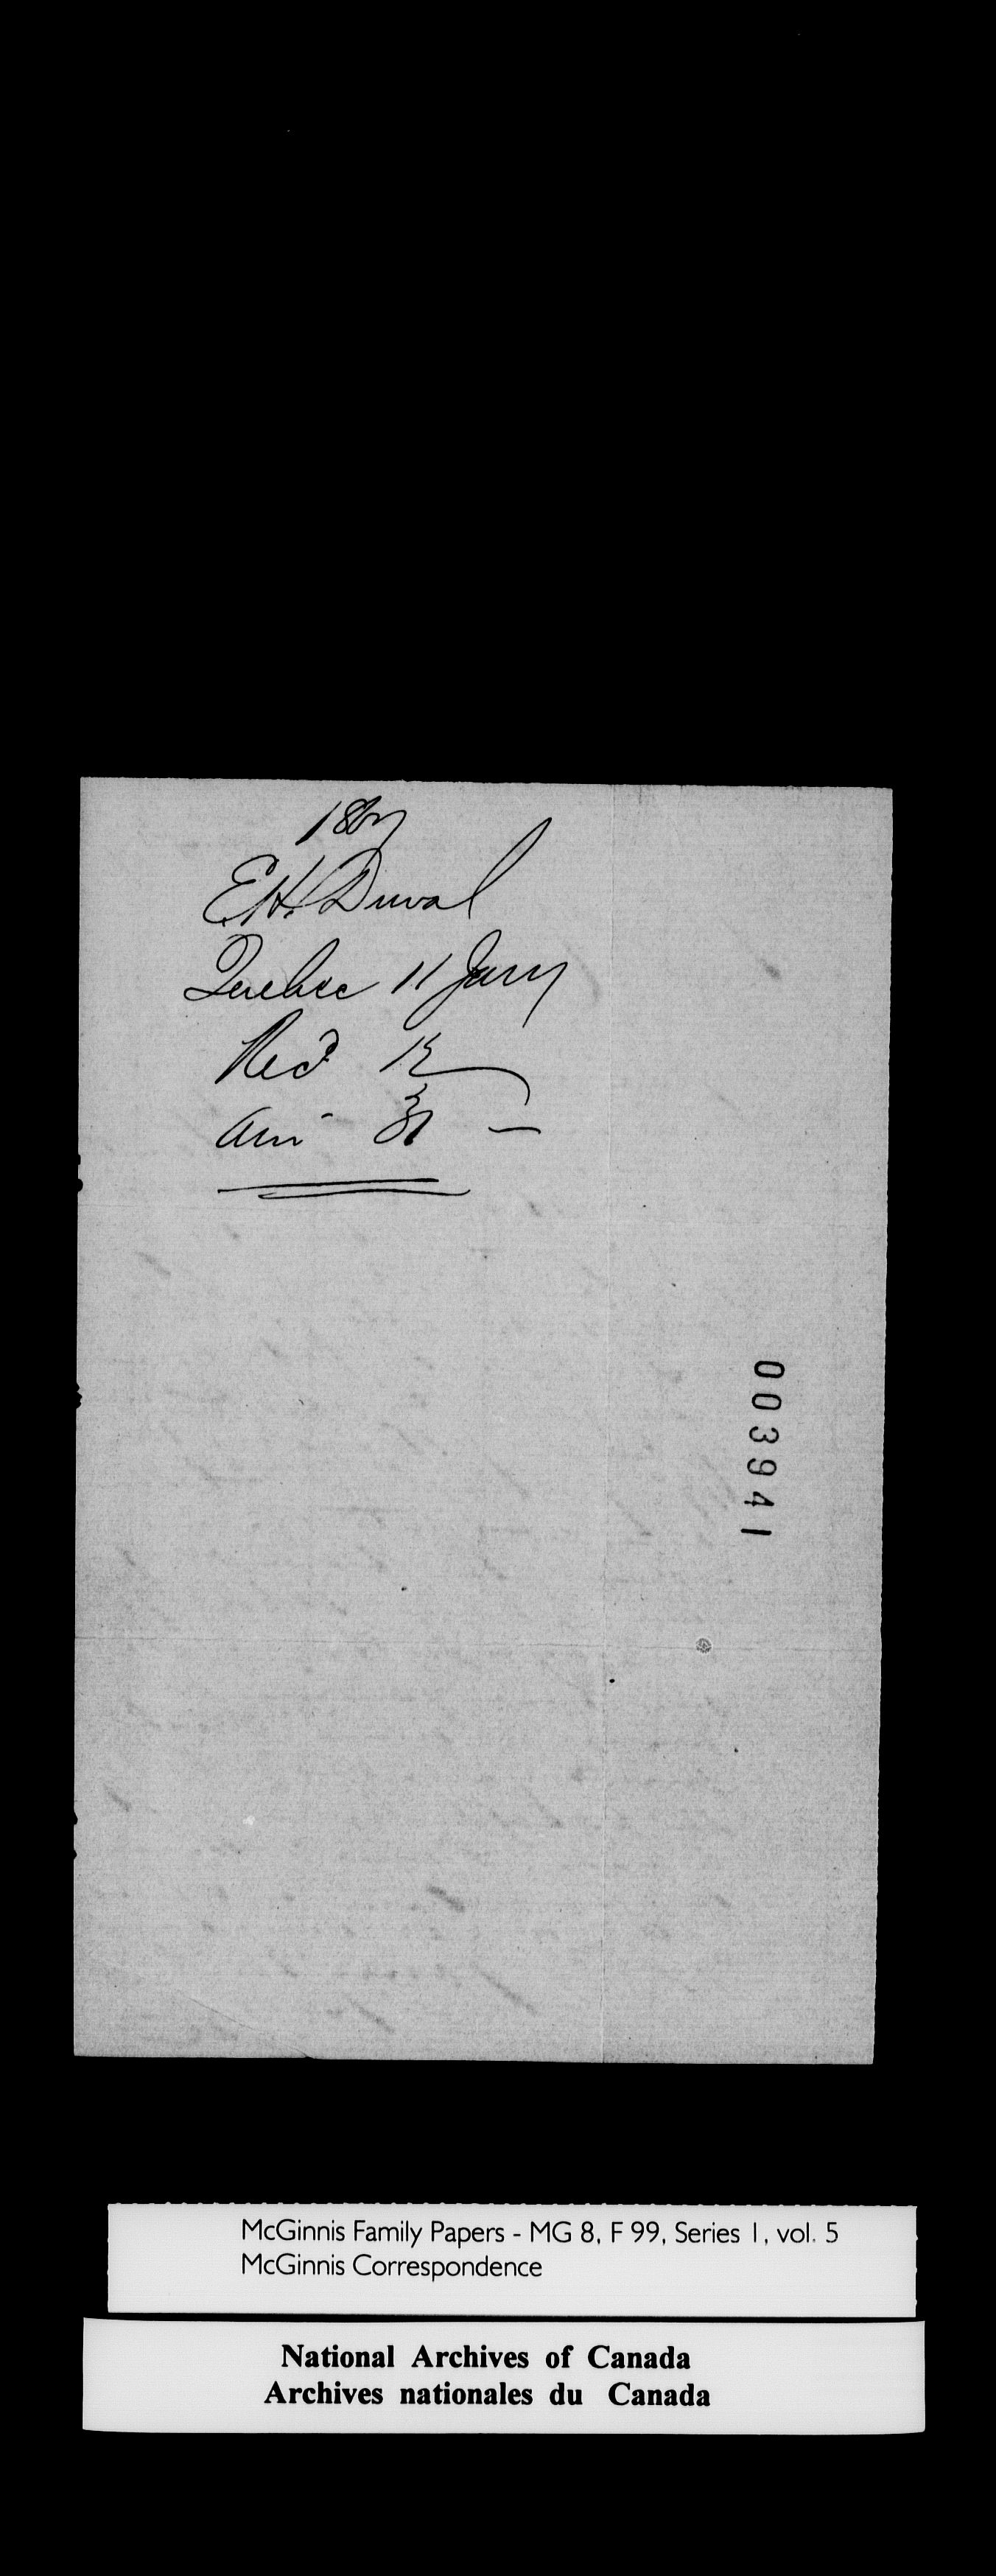 E.H. Duval
Quebec 11 Jany
Recd 12
Ans 31 —
003941
McGinnis Family Papers - MG 8, F 99, Series 1, vol. 5
McGinnis Correspondence
National Archives of Canada
Archives nationales du Canada